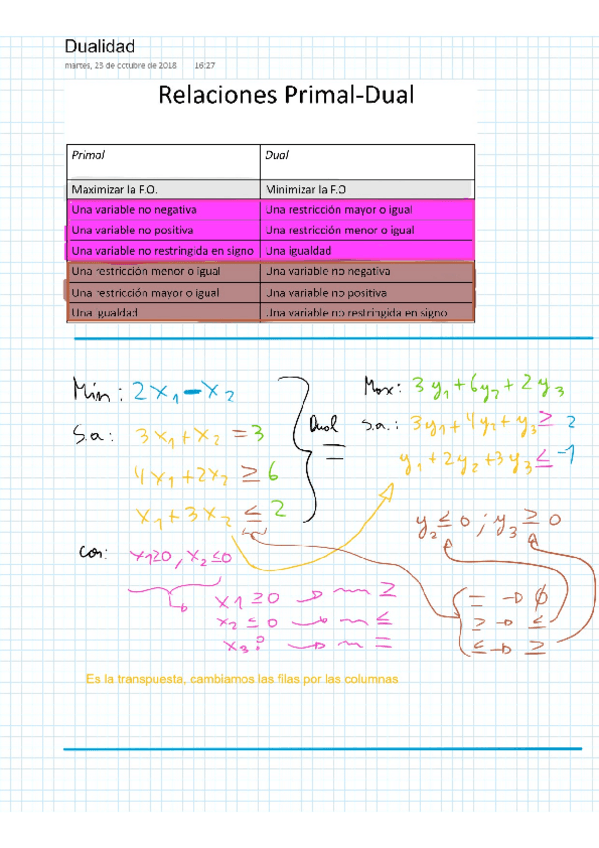 Dualidad
martes, 23 de octubre de 2018 16:27
Relaciones Primal-Dual
Primal Dual
Maximizar la F.O. Minimizar la F.O
Una variable no negativa Una restricción mayor o igual
Una variable no positiva Una restricción menor o igual
Una variable no restringida en signo Una igualdad
Una restricción menor o igual Una variable no negativa
Una restricción mayor o igual Una variable no positiva
Una igualdad Una variable no restringida en signo
Min: 2x₁ - x₂
s.a: 3x₁ + x₂ = 3
4x₁ + 2x₂ ≥ 6
x₁ + 3x₂ ≤ 2
con: x₁≥0, x₂≤0
Dual =
Max: 3y₁ + 6y₂ + 2y₃
s.a.: 3y₁ + 4y₂ + y₃ ≥ 2
y₁ + 2y₂ + 3y₃ ≤ -1
y₂ ≤ 0; y₃ ≥ 0
x₁ ≥ 0 → ≥
x₂ ≤ 0 → ≤
x₃? → =
= → ∅
≥ → ≤
≤ → ≥
Es la transpuesta, cambiamos las filas por las columnas